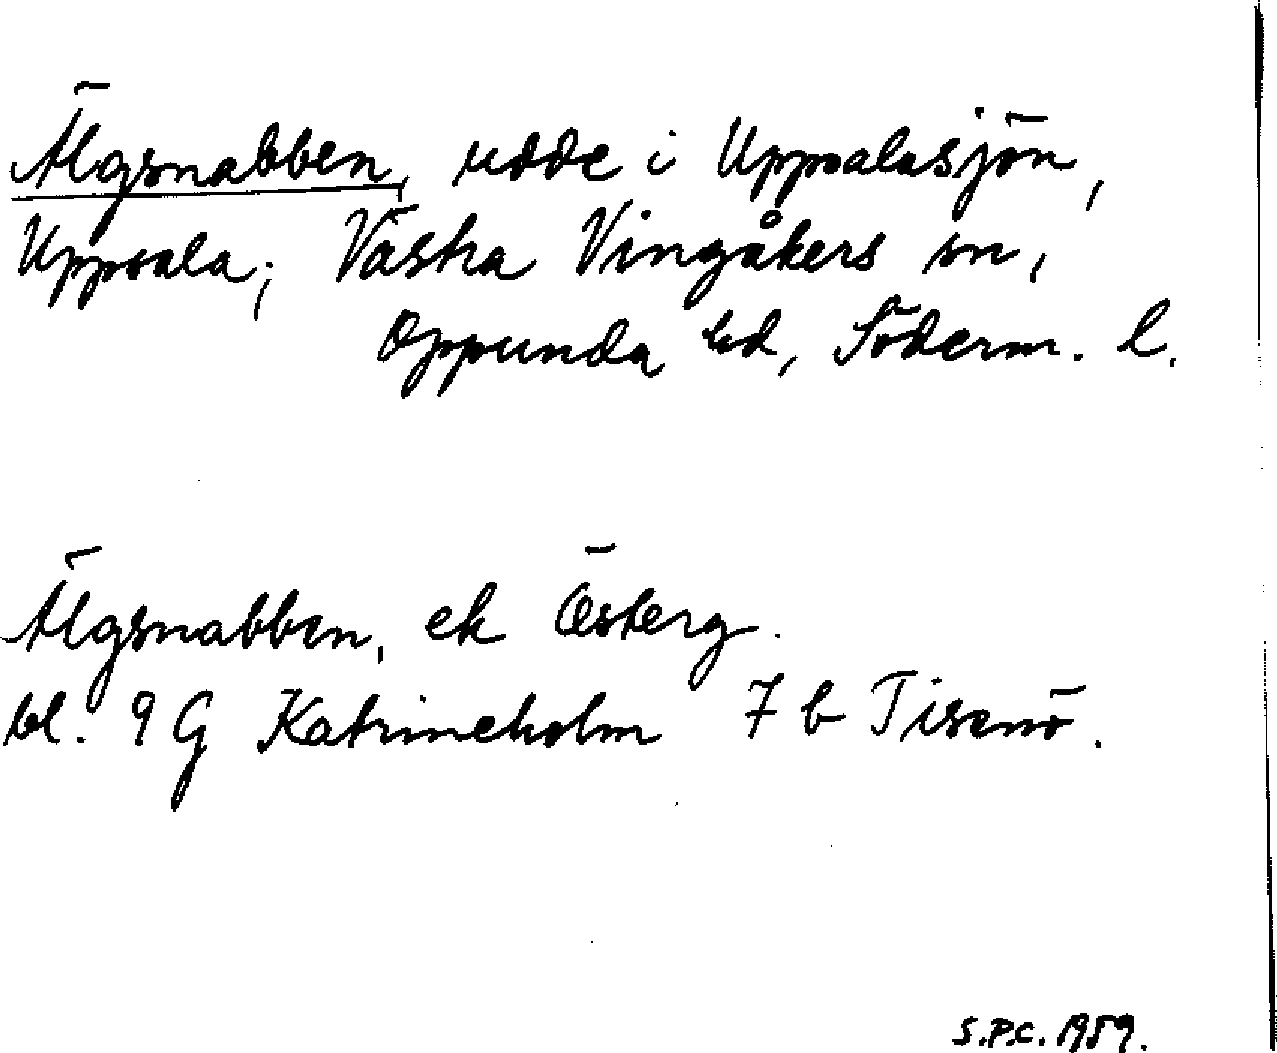 Älgsnabben, udde i Uppsalasjön,
Uppsala; Västra Vingåkers sn,
Oppunda hd, Söderm. l.
Älgsnabben, ek Österg.
bl. 9 G Katrineholm 7 b Tisenö.
S.P.C. 1959.